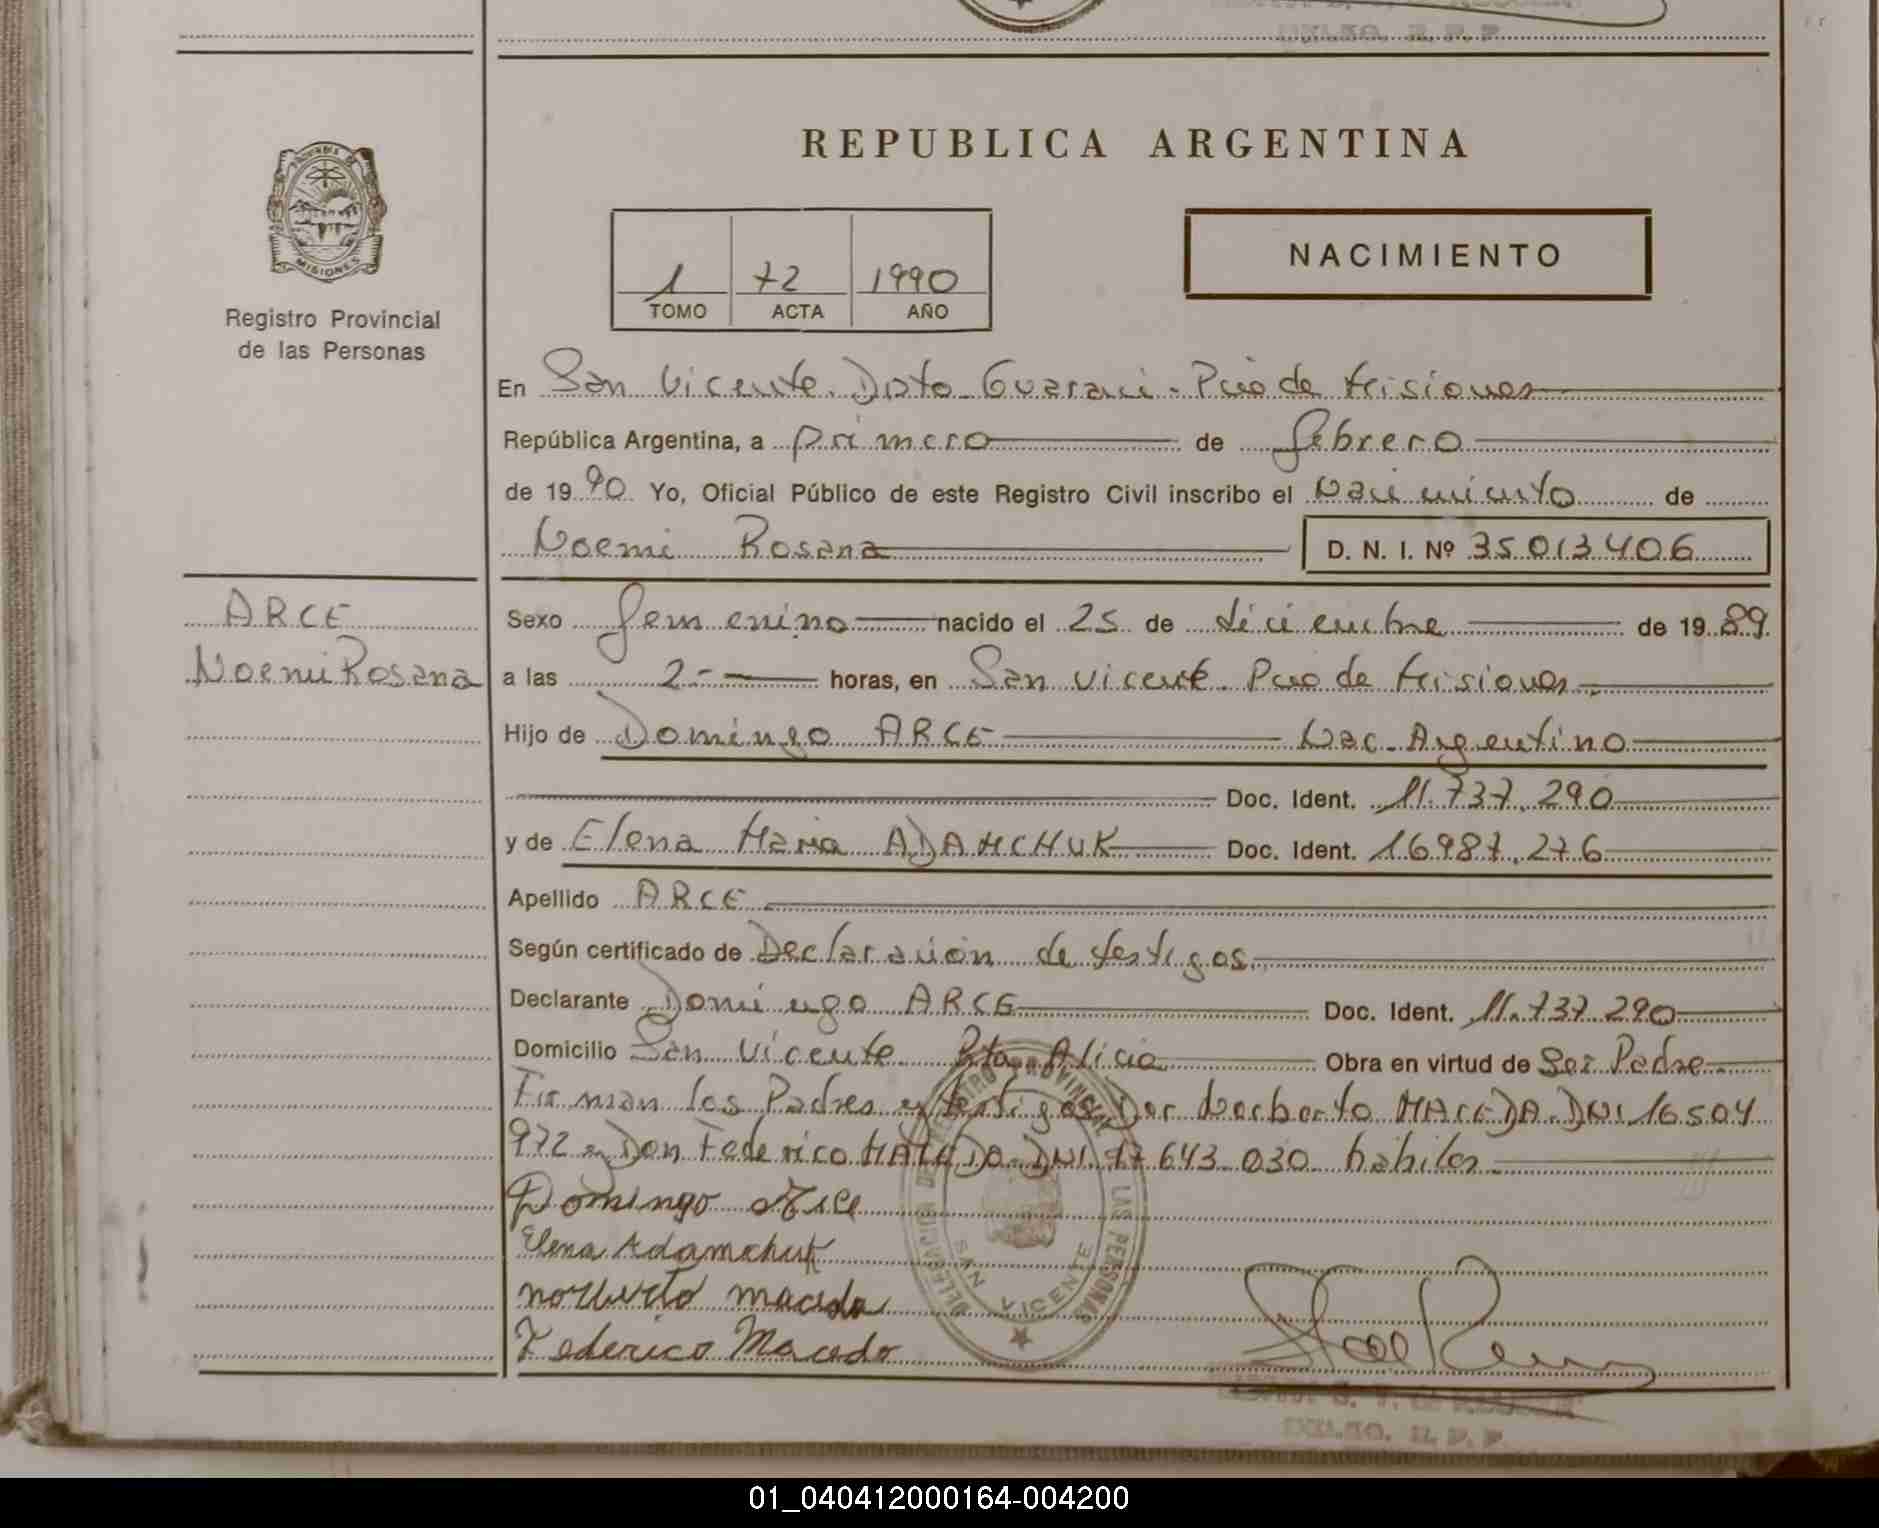 REPUBLICA ARGENTINA
PROVINCIA DE MISIONES
Registro Provincial
de las Personas
1 72 1990
TOMO ACTA AÑO
NACIMIENTO
En San Vicente. Dpto Guarani - Pcio de Misiones
República Argentina, a primero de febrero
de 1990 Yo, Oficial Público de este Registro Civil inscribo el Nacimiento de
Noemi Rosana D. N. I. Nº 35013406
ARCE
Noemi Rosana
Sexo femenino nacido el 25 de diciembre de 1989
a las 2- horas, en San Vicente Pcio de Misiones
Hijo de Domingo ARCE Nac. Argentino
Doc. Ident. 11.737.290
y de Elena Maria ADAMCHUK Doc. Ident. 16987.276
Apellido ARCE
Según certificado de Declaración de testigos
Declarante Domingo ARCE Doc. Ident. 11.737.290
Domicilio San Vicente Pta Alicia Obra en virtud de Ser Padre
Firman los Padres y testigos Norberto MACEDA. DNI 16504
972 Don Federico DNI. 17643 030 habiles
Domingo Arce
Elena Adamchuk
Norberto Maceda
Federico Macedo
DELEGACION DE REGISTRO PROVINCIAL DE LAS PERSONAS
SAN VICENTE
01_040412000164-004200